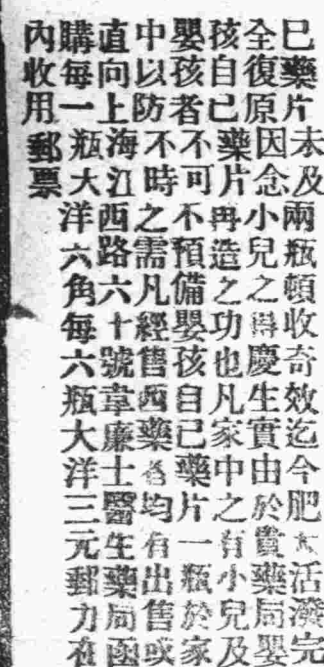 己藥片未及兩瓶頓收奇效迄今肥大活潑完
全復原因念小兒之得慶生實由於貴藥局嬰
孩自己藥片再造之功也凡家中之有小兒及
嬰孩者不可不預備嬰孩自己藥片一瓶於家
中以防不時之需凡經售西藥者均有出售或
直向上海江西路六十號韋廉士醫生藥局函
購每一瓶大洋六角每六瓶大洋三元郵力在
內收用郵票